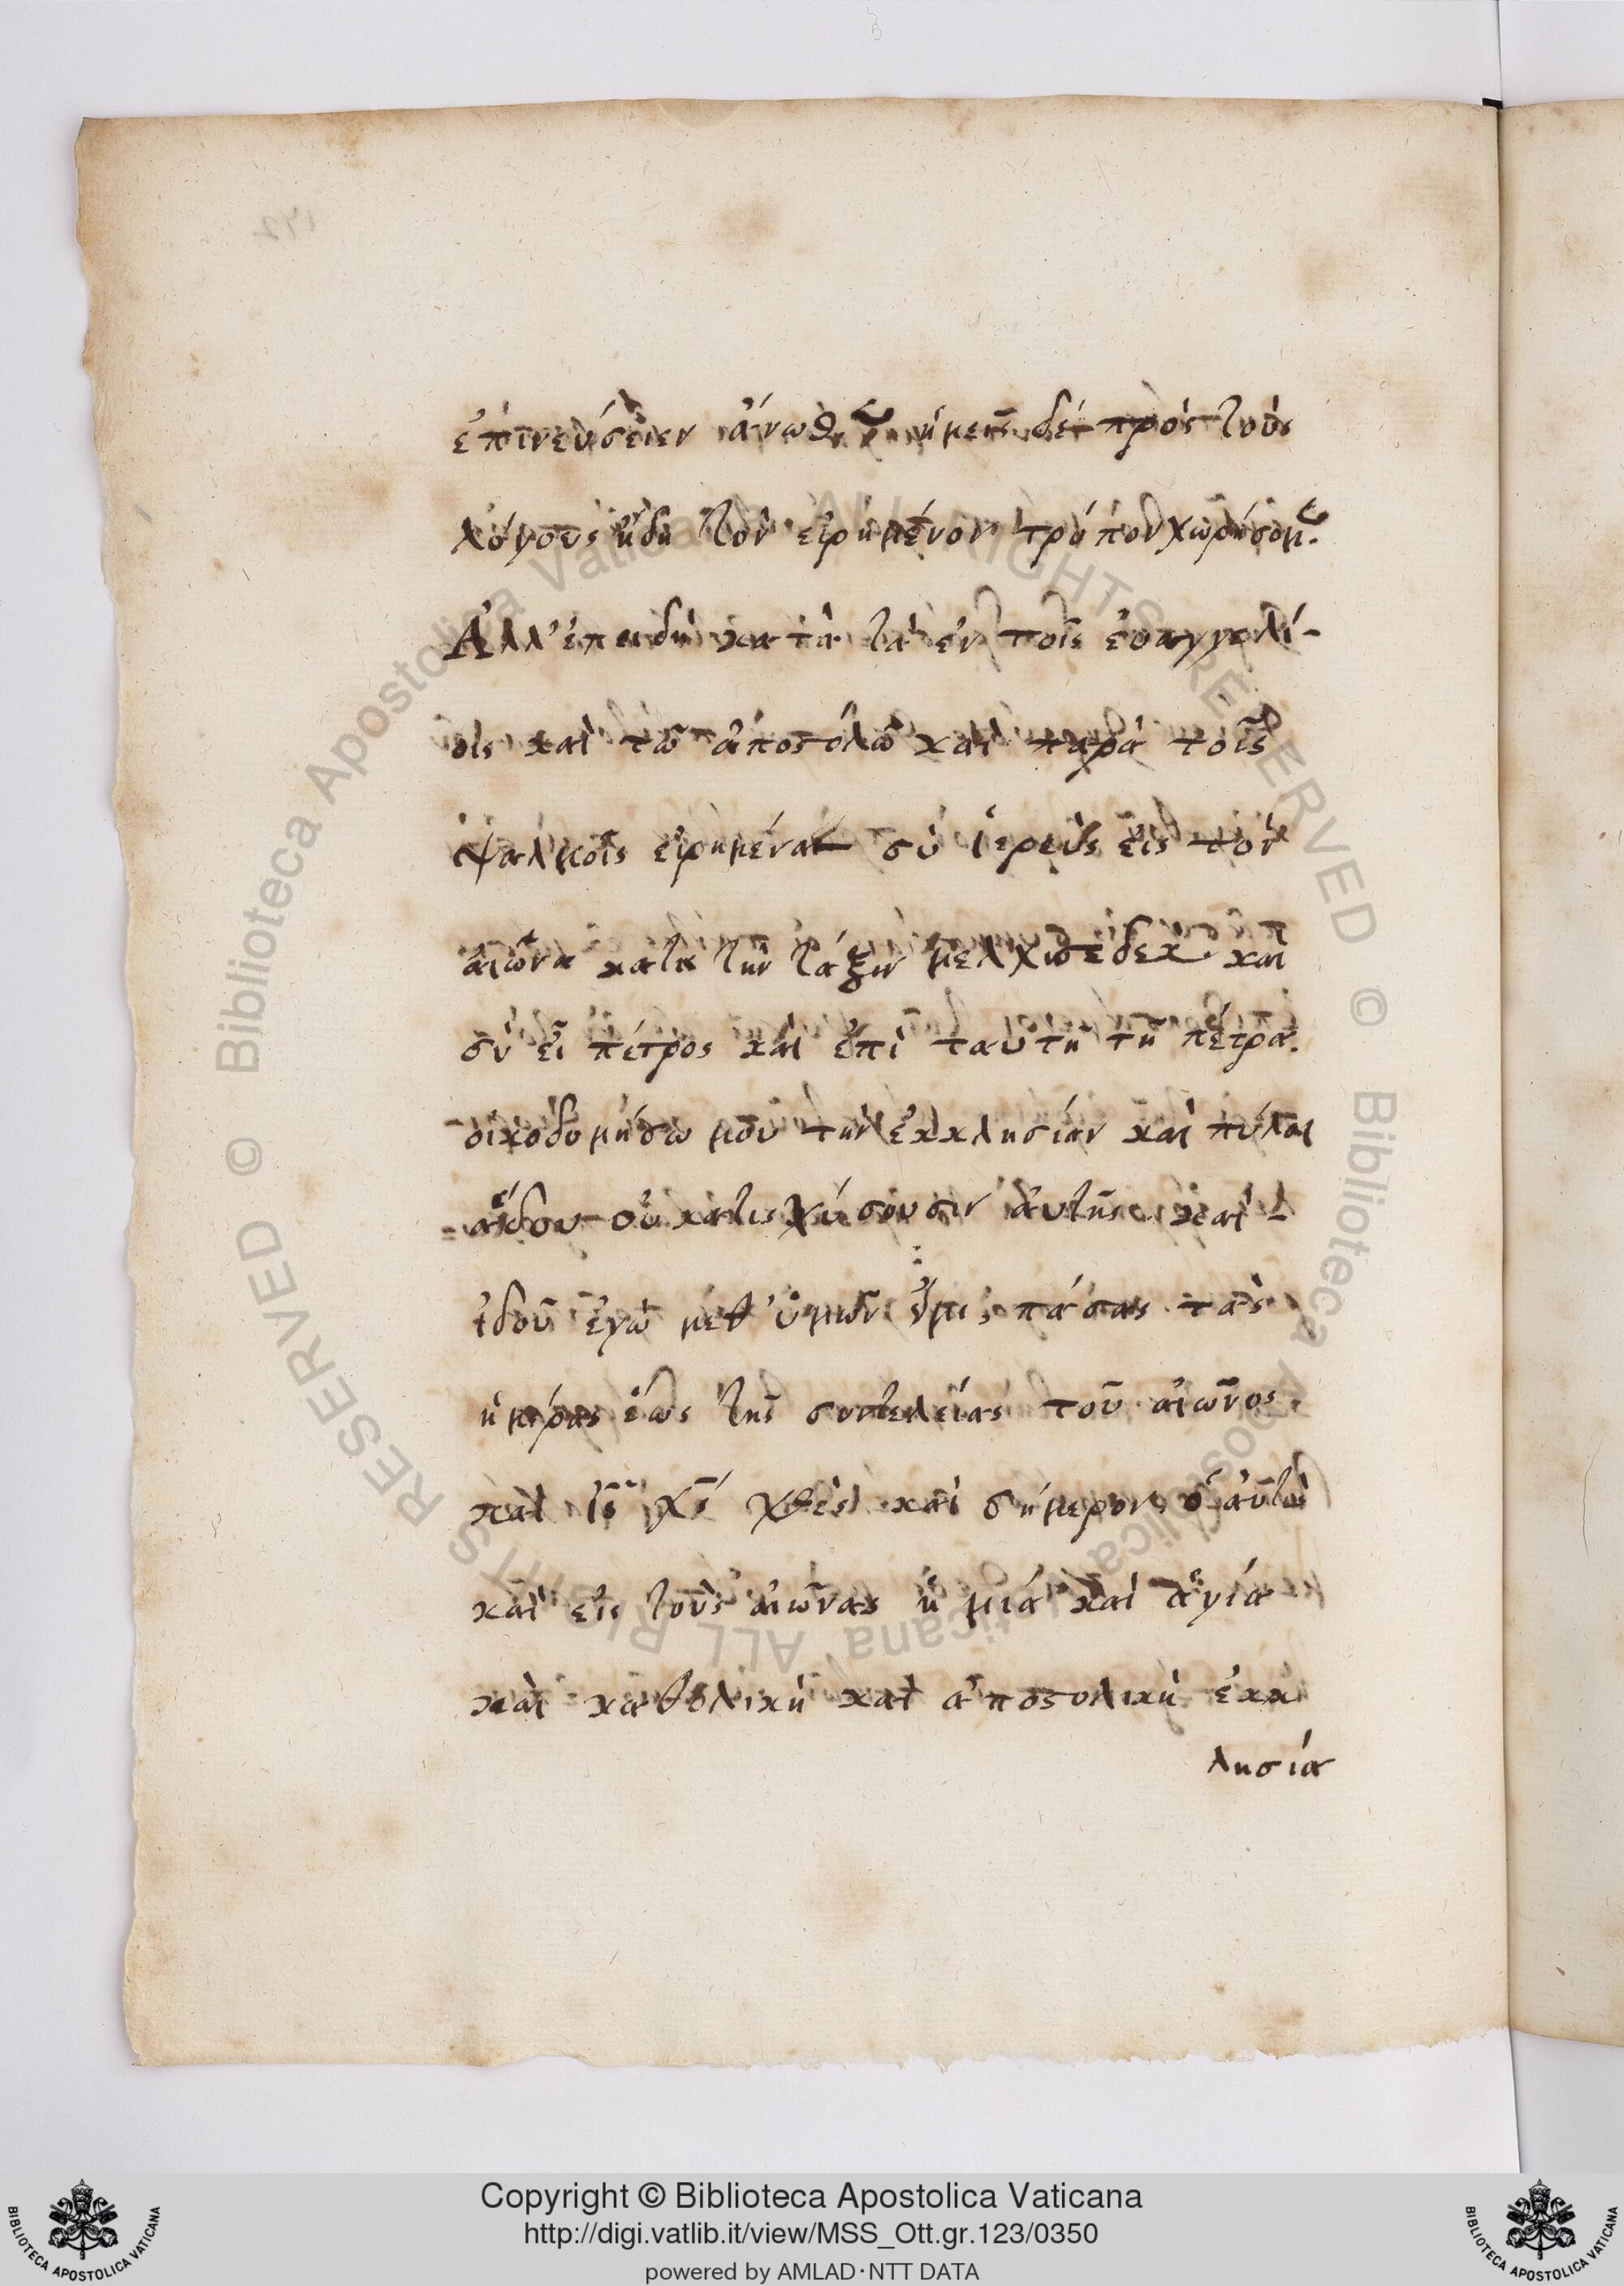 ἐπινεύσειεν ἄνωθεν ἡμεῖς δέ πρὸς τοὺς
λόγους ἤδη τὸν εἰρημένον τρόπον χωρήσομεν.
Ἀλλ' ἐπειδὴ κατὰ τὰ ἐν τοῖς εὐαγγελί-
οις καὶ τῶ ἀποστόλω καὶ παρὰ τοῖς
ψαλμοῖς εἰρημένα σὺ ἱερεὺς εἰς τὸν
αἰῶνα κατὰ τὴν τάξιν μελχισεδεκ καὶ
σὺ εἶ πέτρος καὶ ἐπὶ ταύτη τῆ πέτρα.
οἰκοδομήσω μου τὴν ἐκκλησίαν καὶ πύλαι
ἅδου οὐ κατισχύσουσιν αὐτῆς καὶ-
ἰδοῦ ἐγὼ μεθ' ὑμῶν εἰμι πάσας τὰς
ἡμέρας ἕως τῆς συντελείας τοῦ αἰῶνος.
καὶ ἰς χς χθὲς καὶ σήμερον ὁ αὐτὸς
καὶ εἰς τοὺς αἰῶνας ἡ μιά καὶ ἁγία
καὶ καθολικὴ καὶ ἀποστολικὴ ἐκκ
λησία
© Biblioteca Apostolica Vaticana ALL RIGHTS RESERVED © Biblioteca Apostolica Vaticana ALL RIGHTS RESERVED
Copyright © Biblioteca Apostolica Vaticana
http://digi.vatlib.it/view/MSS_Ott.gr.123/0350
powered by AMLAD·NTT DATA
BIBLIOTECA APOSTOLICA VATICANA
BIBLIOTECA APOSTOLICA VATICANA